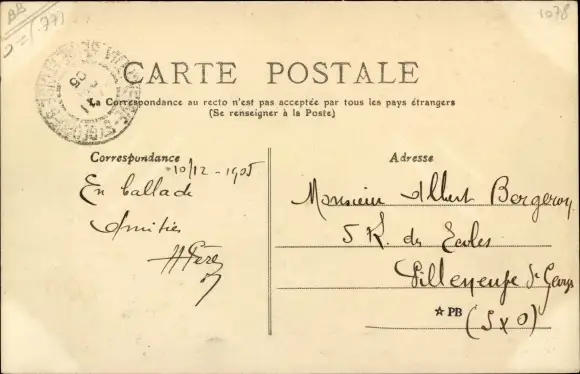 1078
BB
CARTE POSTALE
La Correspondance au recto n'est pas acceptée par tous les pays étrangers
(Se renseigner à la Poste)
Correspondance
10/12 - 1905
En ballade
Amitiés
Adresse
Monsieur Albert Bergeron
5 R. des Ecoles
Villeneuve St Georges
☆ PB
(S x O)